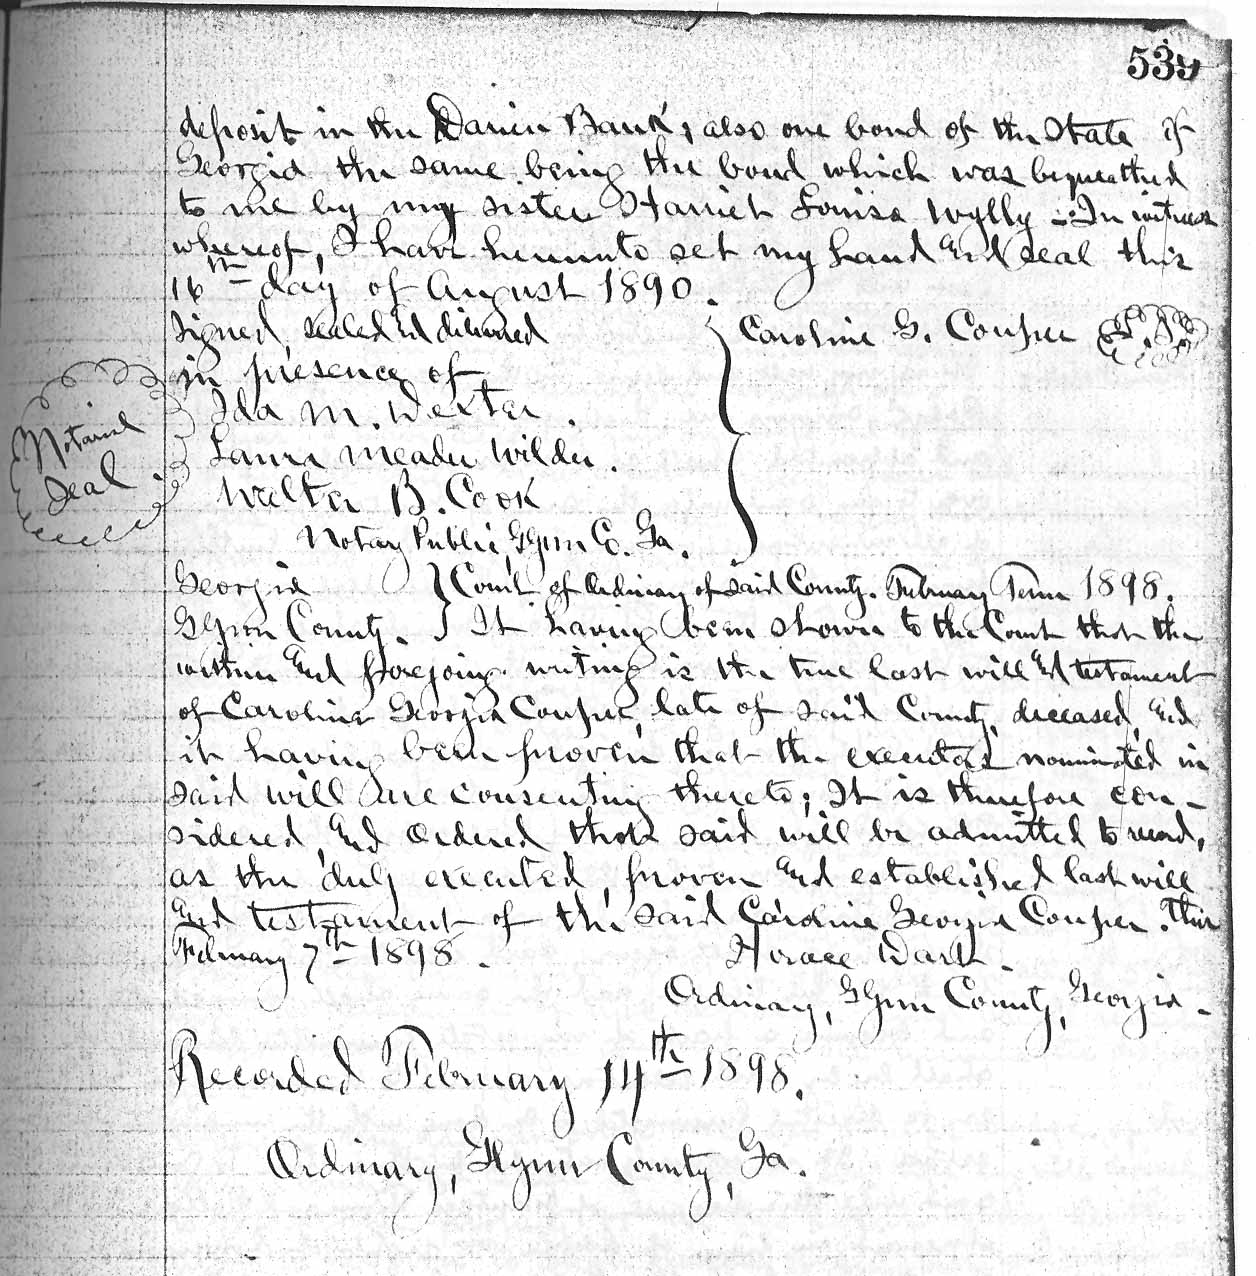 539
deposit in the Darien Bank; also one bond of the State of
Georgia the same being the bond which was bequeathed
to me by my sister Harriet Louisa Wylly :- In witness
whereof, I have hereunto set my hand and seal this
16th day of August 1890.
Signed, sealed and delivered
in presence of
Caroline G. Couper L.S.
Ida M. Dexter
Laura Meader Wilder.
Walter B. Cook
Notary Public, Glynn Co. Ga.
Notarial
Seal.
Georgia } Court of Ordinary of said County. February Term 1898.
Glynn County. } It having been shown to the Court that the
within and foregoing writing is the true last will and testament
of Caroline Georgia Couper, late of said County, deceased, and
it having been proven that the executors nominated in
said will are consenting thereto; It is therefore con-
sidered, and ordered that said will be admitted to record,
as the duly executed, proven and established last will
and testament of the said Caroline Georgia Couper. This
February 7th 1898.
Horace Dart.
Ordinary, Glynn County, Georgia.
Recorded February 14th 1898.
Ordinary, Glynn County, Ga.